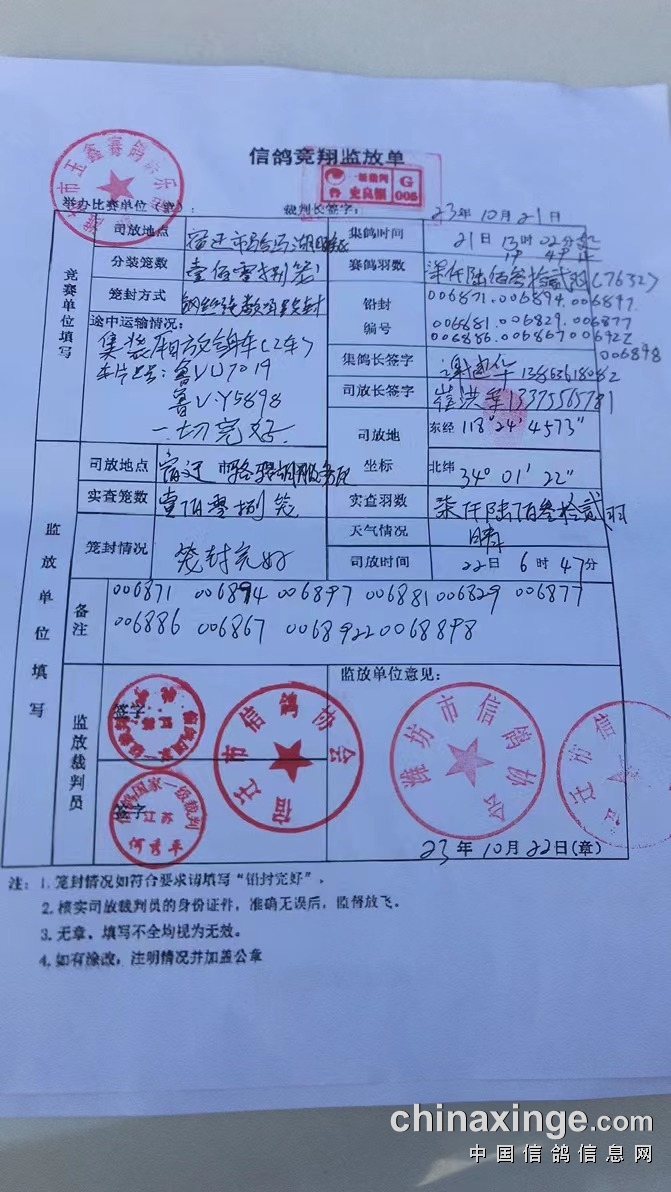 信鸽竞翔监放单
举办比赛单位（章）： 裁判长签字： 23年10月21日
一级裁判 G
鲁 005
竞赛单位填写
司放地点 宿迁市骆马湖 集鸽时间 21日13时02分至
分装笼数 壹佰零捌笼 赛鸽羽数 柒仟陆佰叁拾贰羽(7632)
笼封方式 铅封 006871.006894.006897
途中运输情况： 编号 006881.006829.006877
006886.006867 006922
006898
集装箱放鸽车(2车)
车牌号：鲁VU7019 集鸽长签字
鲁V.Y5898 司放长签字 崔洪军13375565781
一切完好 司放地坐标 东经 118°24′4573″
司放地点 宿迁市骆马湖服务区 北纬 34°01′22″
实查笼数 壹佰零捌笼 实查羽数 柒仟陆佰叁拾贰羽
笼封情况 笼封完好 天气情况 晴
司放时间 22日6时47分
监放单位填写
备注 006871 006894 006897 006881 006829 006877
006886 006867 006892 20068898
监放裁判员 签字 监放单位意见：
签字
国家一级裁判
江苏
市信鸽协会
潍坊市信鸽协会
23年10月22日(章)
注：1. 笼封情况如符合要求请填写“铅封完好”。
2. 核实司放裁判员的身份证件，准确无误后，监督放飞。
3. 无章、填写不全均视为无效。
4. 如有涂改，注明情况并加盖公章
chinaxinge.com
中国信鸽信息网